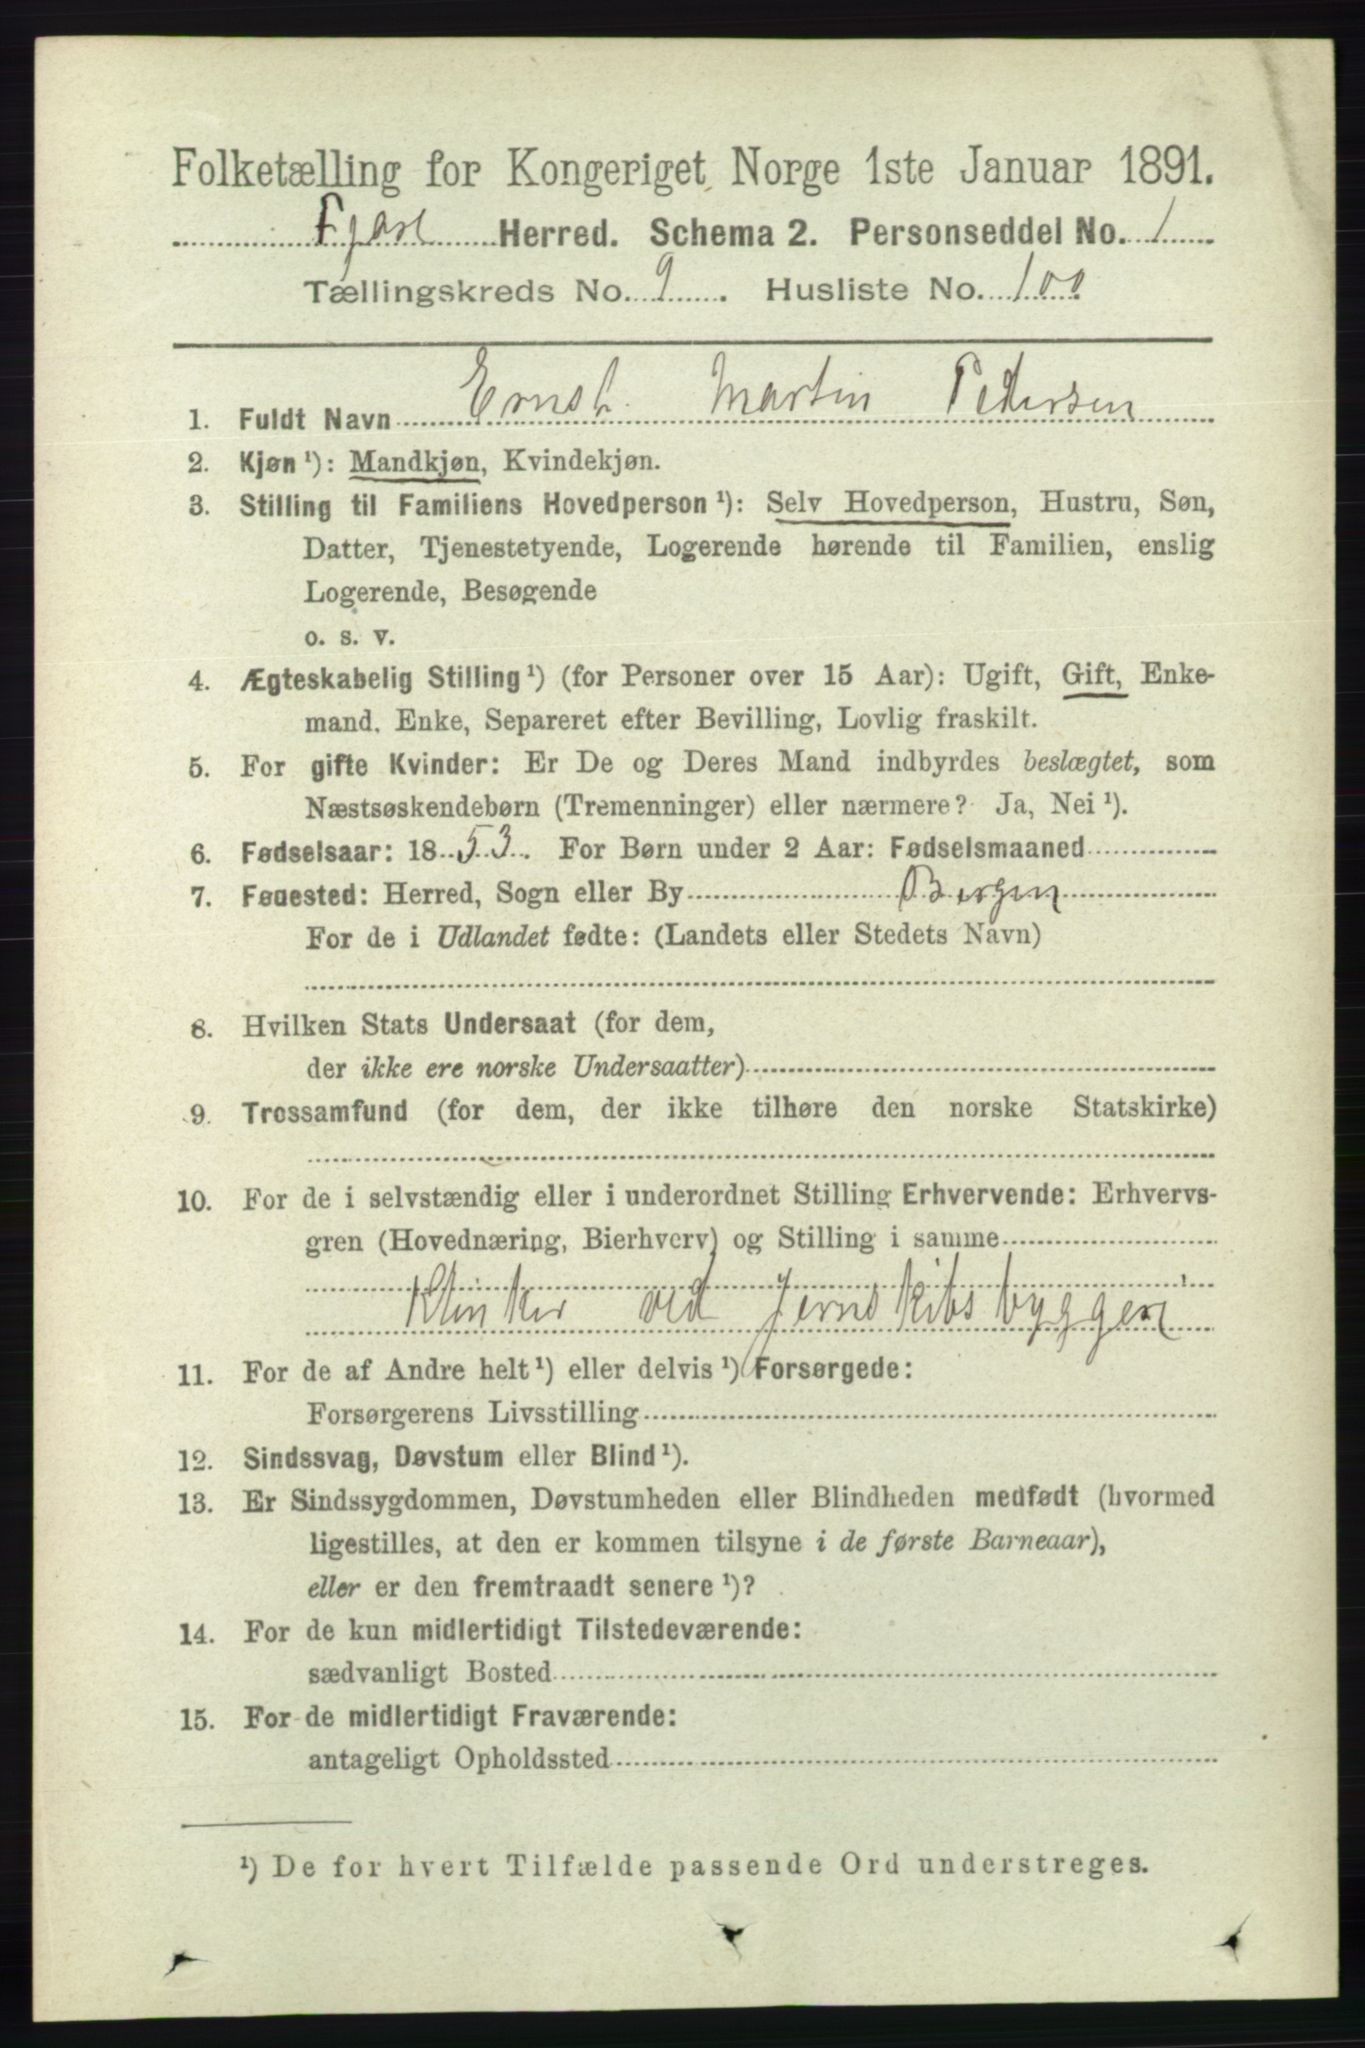 Folketælling for Kongeriget Norge 1ste Januar 1891.
Fjære Herred. Schema 2. Personseddel No. 1
Tællingskreds No. 9. Husliste No. 100
1. Fuldt Navn Ernst Martin Pedersen
2. Kjøn ¹): Mandkjøn, Kvindekjøn.
3. Stilling til Familiens Hovedperson ¹): Selv Hovedperson, Hustru, Søn,
Datter, Tjenestetyende, Logerende hørende til Familien, enslig
Logerende, Besøgende
o. s. v.
4. Ægteskabelig Stilling ¹) (for Personer over 15 Aar): Ugift, Gift, Enke-
mand, Enke, Separeret efter Bevilling, Lovlig fraskilt.
5. For gifte Kvinder: Er De og Deres Mand indbyrdes beslægtet, som
Næstsøskendebørn (Tremenninger) eller nærmere? Ja, Nei ¹).
6. Fødselsaar: 1853. For Børn under 2 Aar: Fødselsmaaned
7. Fødested: Herred, Sogn eller By Bergen
For de i Udlandet fødte: (Landets eller Stedets Navn)
8. Hvilken Stats Undersaat (for dem,
der ikke ere norske Undersaatter)
9. Trossamfund (for dem, der ikke tilhøre den norske Statskirke)
10. For de i selvstændig eller i underordnet Stilling Erhvervende: Erhvervs-
gren (Hovednæring, Bierhverv) og Stilling i samme
Klinker ved Jernskibsbyggeri
11. For de af Andre helt ¹) eller delvis ¹) Forsørgede:
Forsørgerens Livsstilling
12. Sindssvag, Døvstum eller Blind ¹).
13. Er Sindssygdommen, Døvstumheden eller Blindheden medfødt (hvormed
ligestilles, at den er kommen tilsyne i de første Barneaar),
eller er den fremtraadt senere ¹)?
14. For de kun midlertidigt Tilstedeværende:
sædvanligt Bosted
15. For de midlertidigt Fraværende:
antageligt Opholdssted
¹) De for hvert Tilfælde passende Ord understreges.